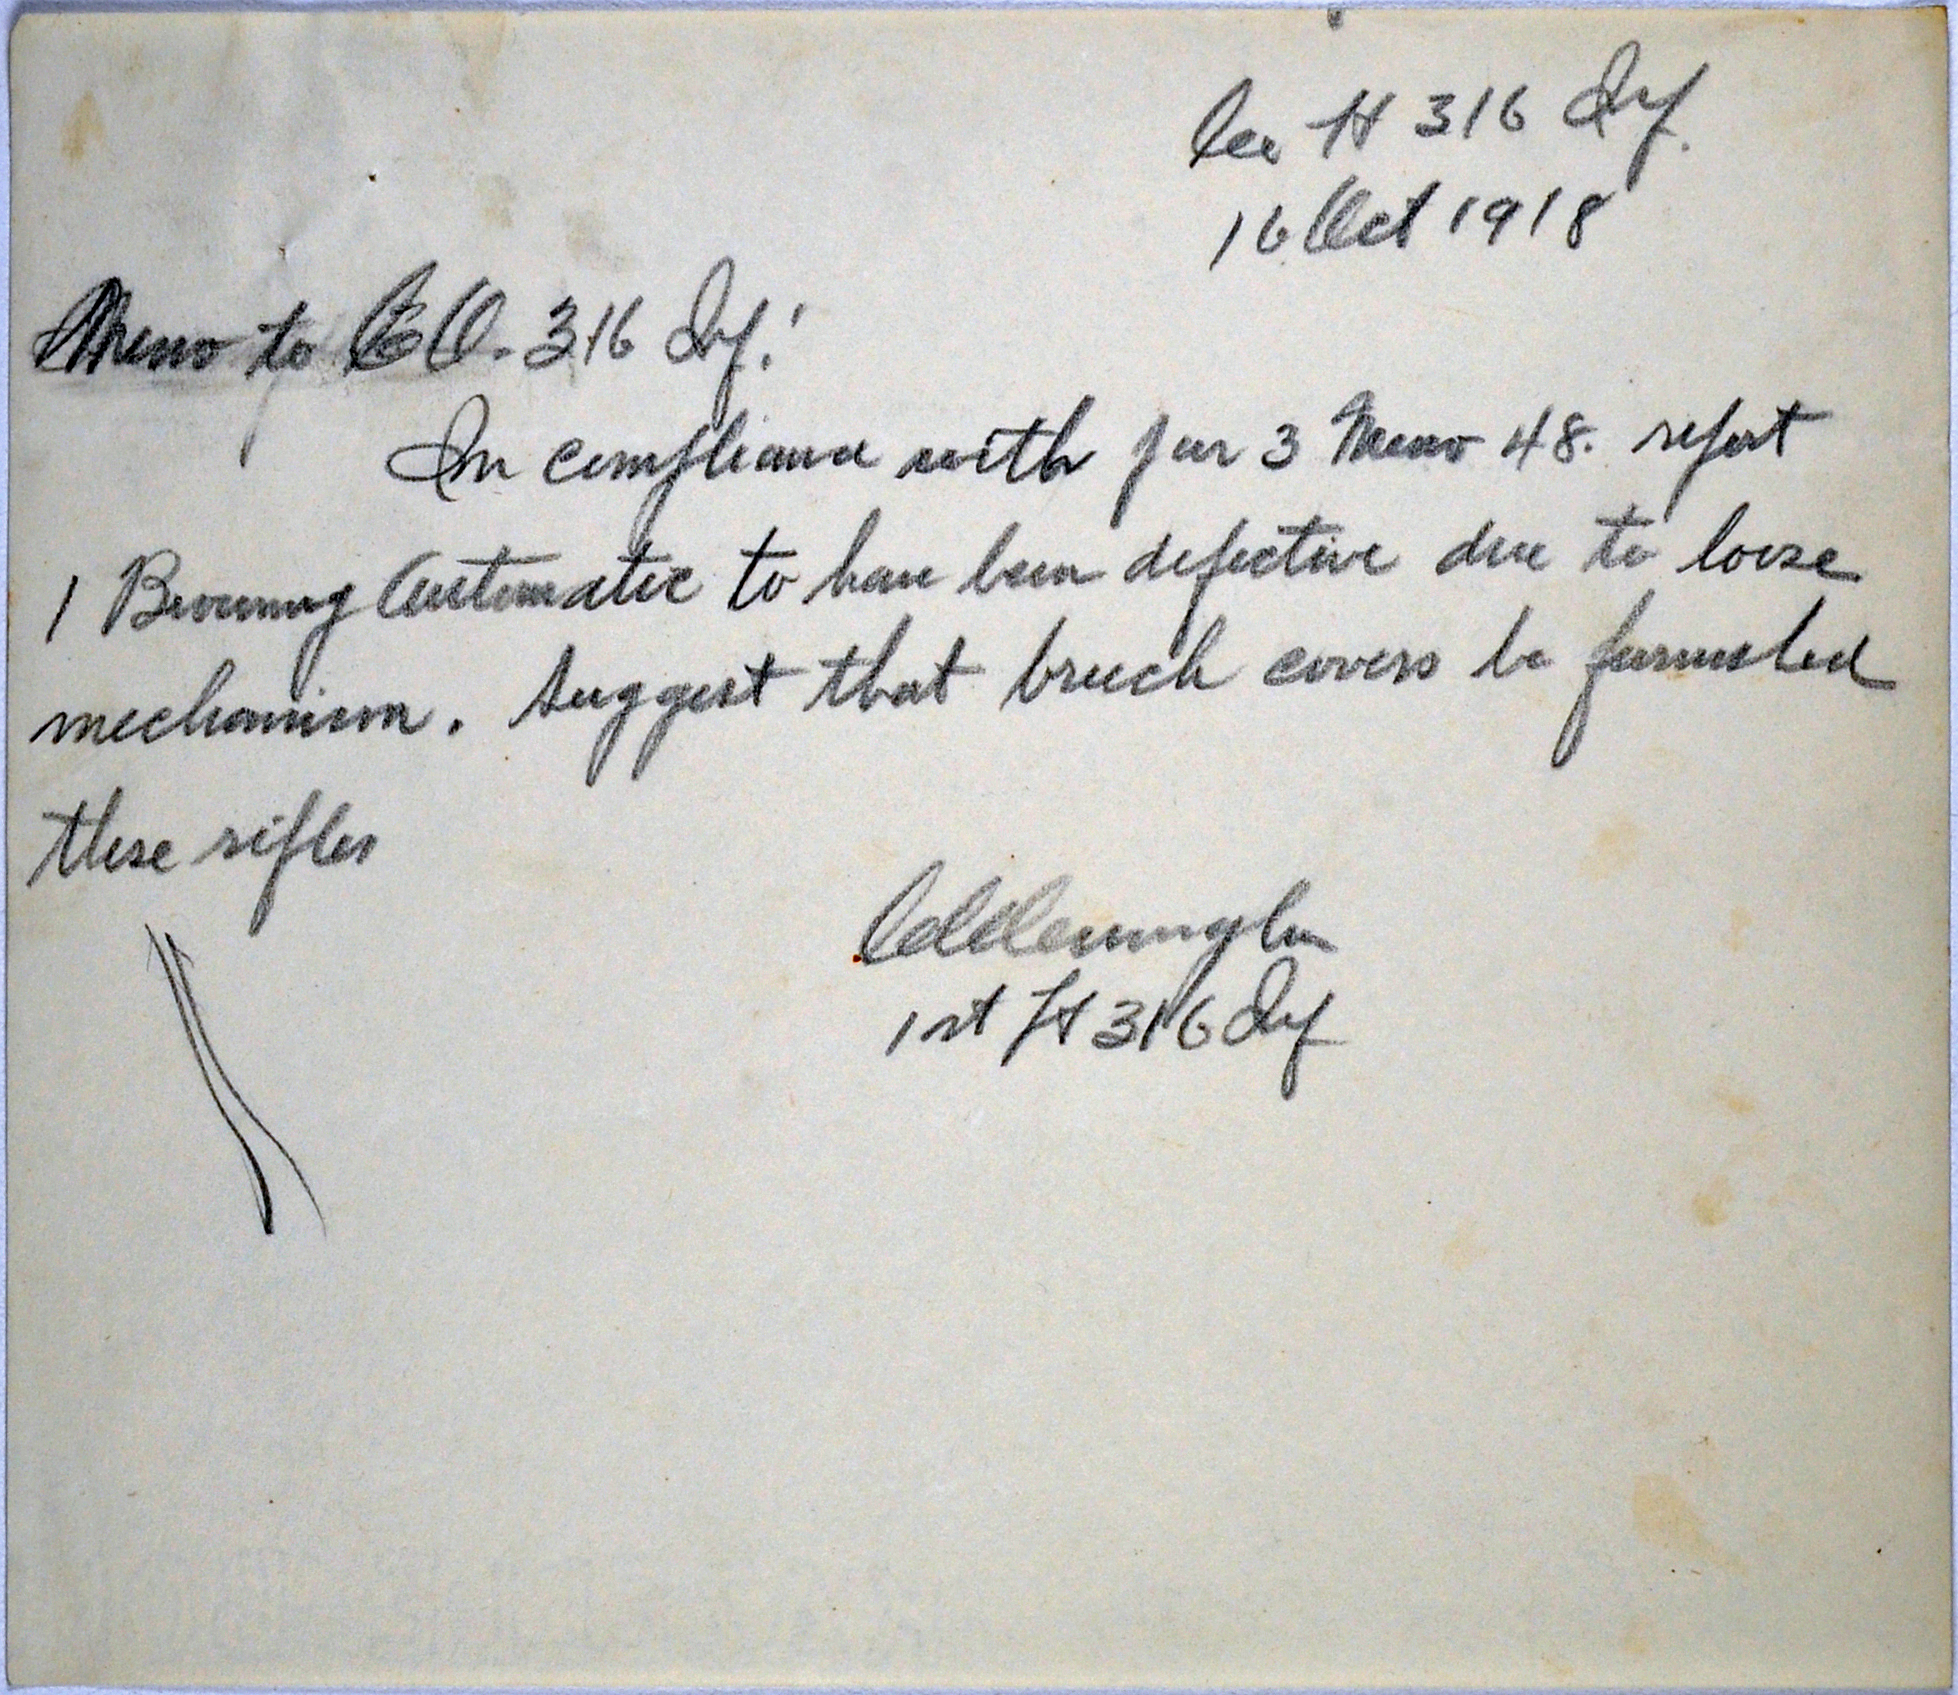 Co H 316 Inf.
16 Oct 1918
Memo to C.O. 316 Inf:
In compliance with par 3 Memo 48. report
1 Browning Automatic to have been defective due to loose
mechanism. Suggest that breech covers be furnished
these rifles
1st Lt 316 Inf